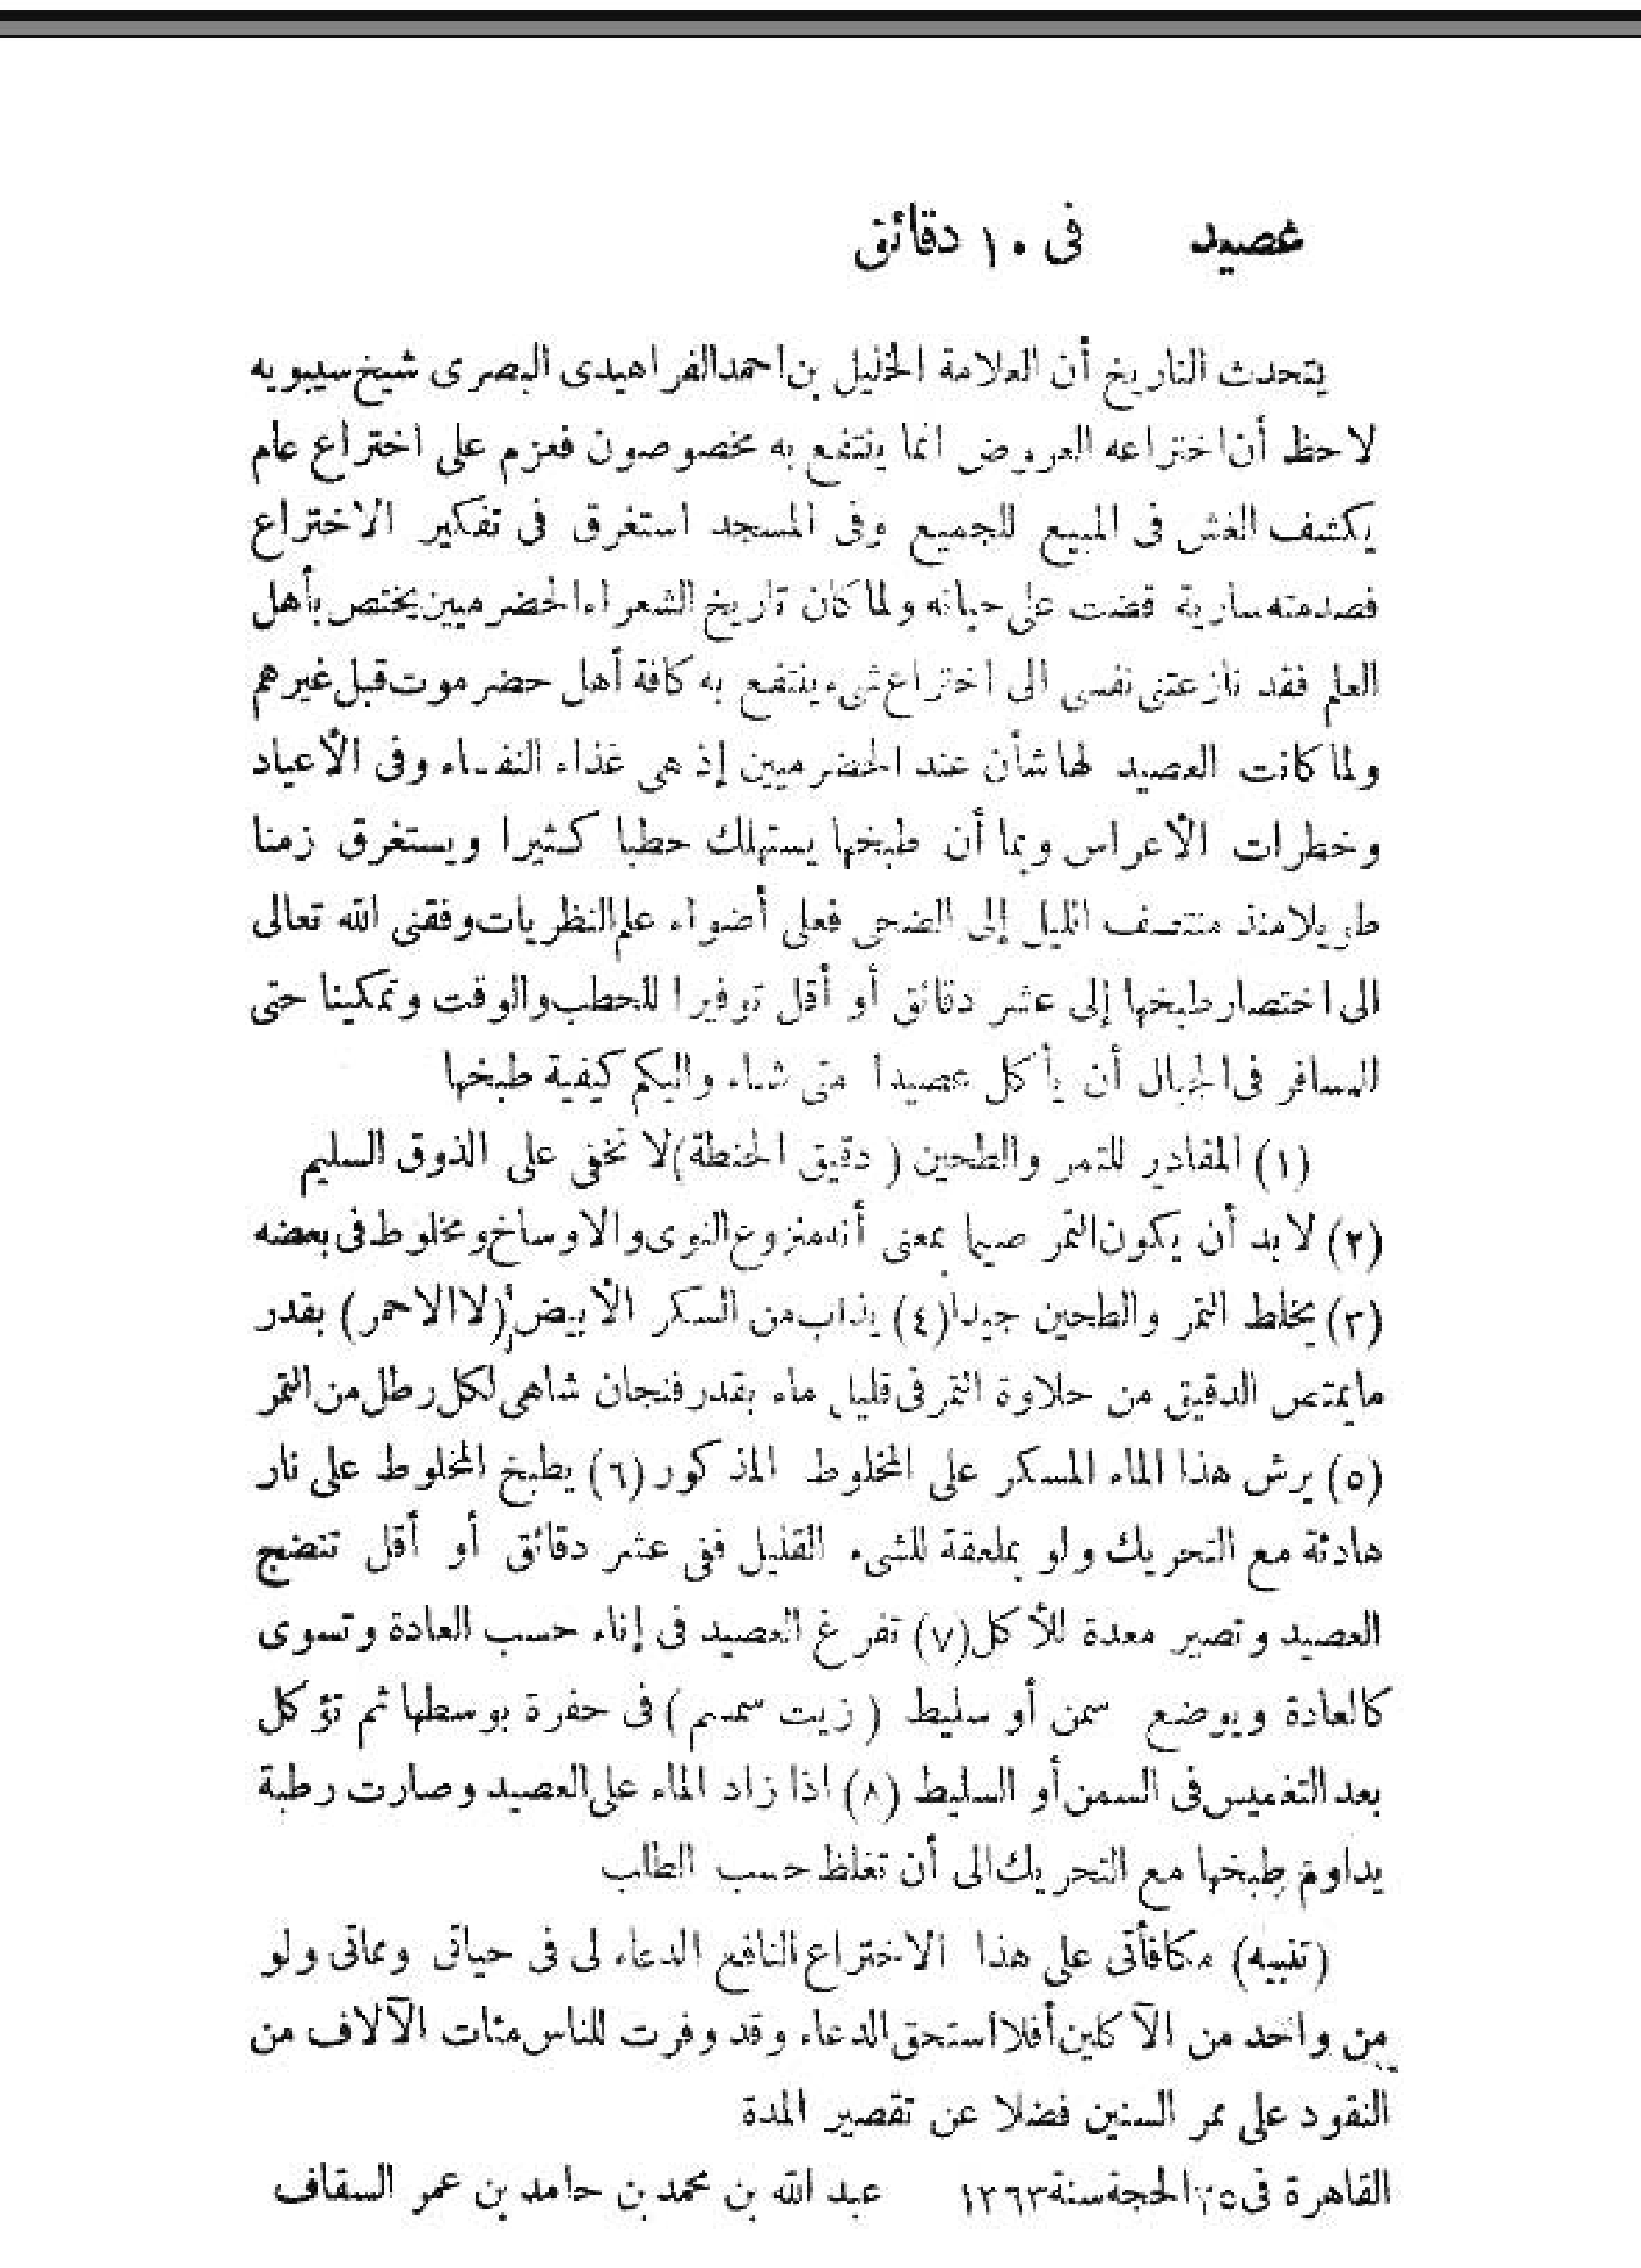 عصيد فى ١٠ دقائق
يتحدث التاريخ أن العلامة الخليل بن احمد الفراهيدى البصرى شيخ سيبويه
لاحظ أن اختراعه العروض انما ينتفع به مخصوصون فعزم على اختراع عام
يكشف الغش فى المبيع للجميع وفى المسجد استغرق فى تفكير الاختراع
فصدمته سارية قضت على حياته ولما كان تاريخ الشعراء الحضرميين يختص بأهل
العلم فقد نازعتنى نفسى الى اختراع شىء ينتفع به كافة أهل حضرموت قبل غيرهم
ولما كانت العصيد لها شأن عند الحضرميين إذ هى غذاء النفساء وفى الأعياد
وخطرات الأعراس وبما أن طبخها يستهلك حطبا كثيرا ويستغرق زمنا
طويلا منذ منتصف الليل إلى الضحى فعلى أضواء علم النظريات وفقنى الله تعالى
الى اختصار طبخها إلى عشر دقائق أو أقل توفيرا للحطب والوقت وتمكينا حتى
للمسافر فى الجبال أن يأكل عصيدا متى شاء واليكم كيفية طبخها
(١) المقادير للتمر والطحين ( دقيق الحنطة) لا تخفى على الذوق السليم
(٢) لابد أن يكون التمر صيما بمعنى أنه منزوع النوى والاوساخ ومخلوط فى بعضه
(٣) يخلط التمر والطحين جيدا (٤) يذاب من السكر الأبيض (لا الاحمر) بقدر
ما يمتص الدقيق من حلاوة التمر فى قليل ماء بقدر فنجان شاهى لكل رطل من التمر
(٥) يرش هذا الماء المسكر على المخلوط المذكور (٦) يطبخ المخلوط على نار
هادئة مع التحريك ولو بملعقة للشىء القليل ففى عشر دقائق أو أقل تنضج
العصيد وتصير معدة للأكل (٧) تفرغ العصيد فى إناء حسب العادة وتسوى
كالعادة ويوضع سمن أو سليط ( زيت سمسم ) فى حفرة بوسطها ثم تؤكل
بعد التغميس فى السمن أو السليط (٨) اذا زاد الماء على العصيد وصارت رطبة
يداوم طبخها مع التحريك الى أن تغلظ حسب الطلب
(تنبيه) مكافأتى على هذا الاختراع النافع الدعاء لى فى حياتى ومماتى ولو
من واحد من الآكلين أفلا استحق الدعاء وقد وفرت للناس مئات الآلاف من
النقود على ممر السنين فضلا عن تقصير المدة
القاهرة فى ٢٥ الحجة سنة ١٣٦٣ عبد الله بن محمد بن حامد بن عمر السقاف